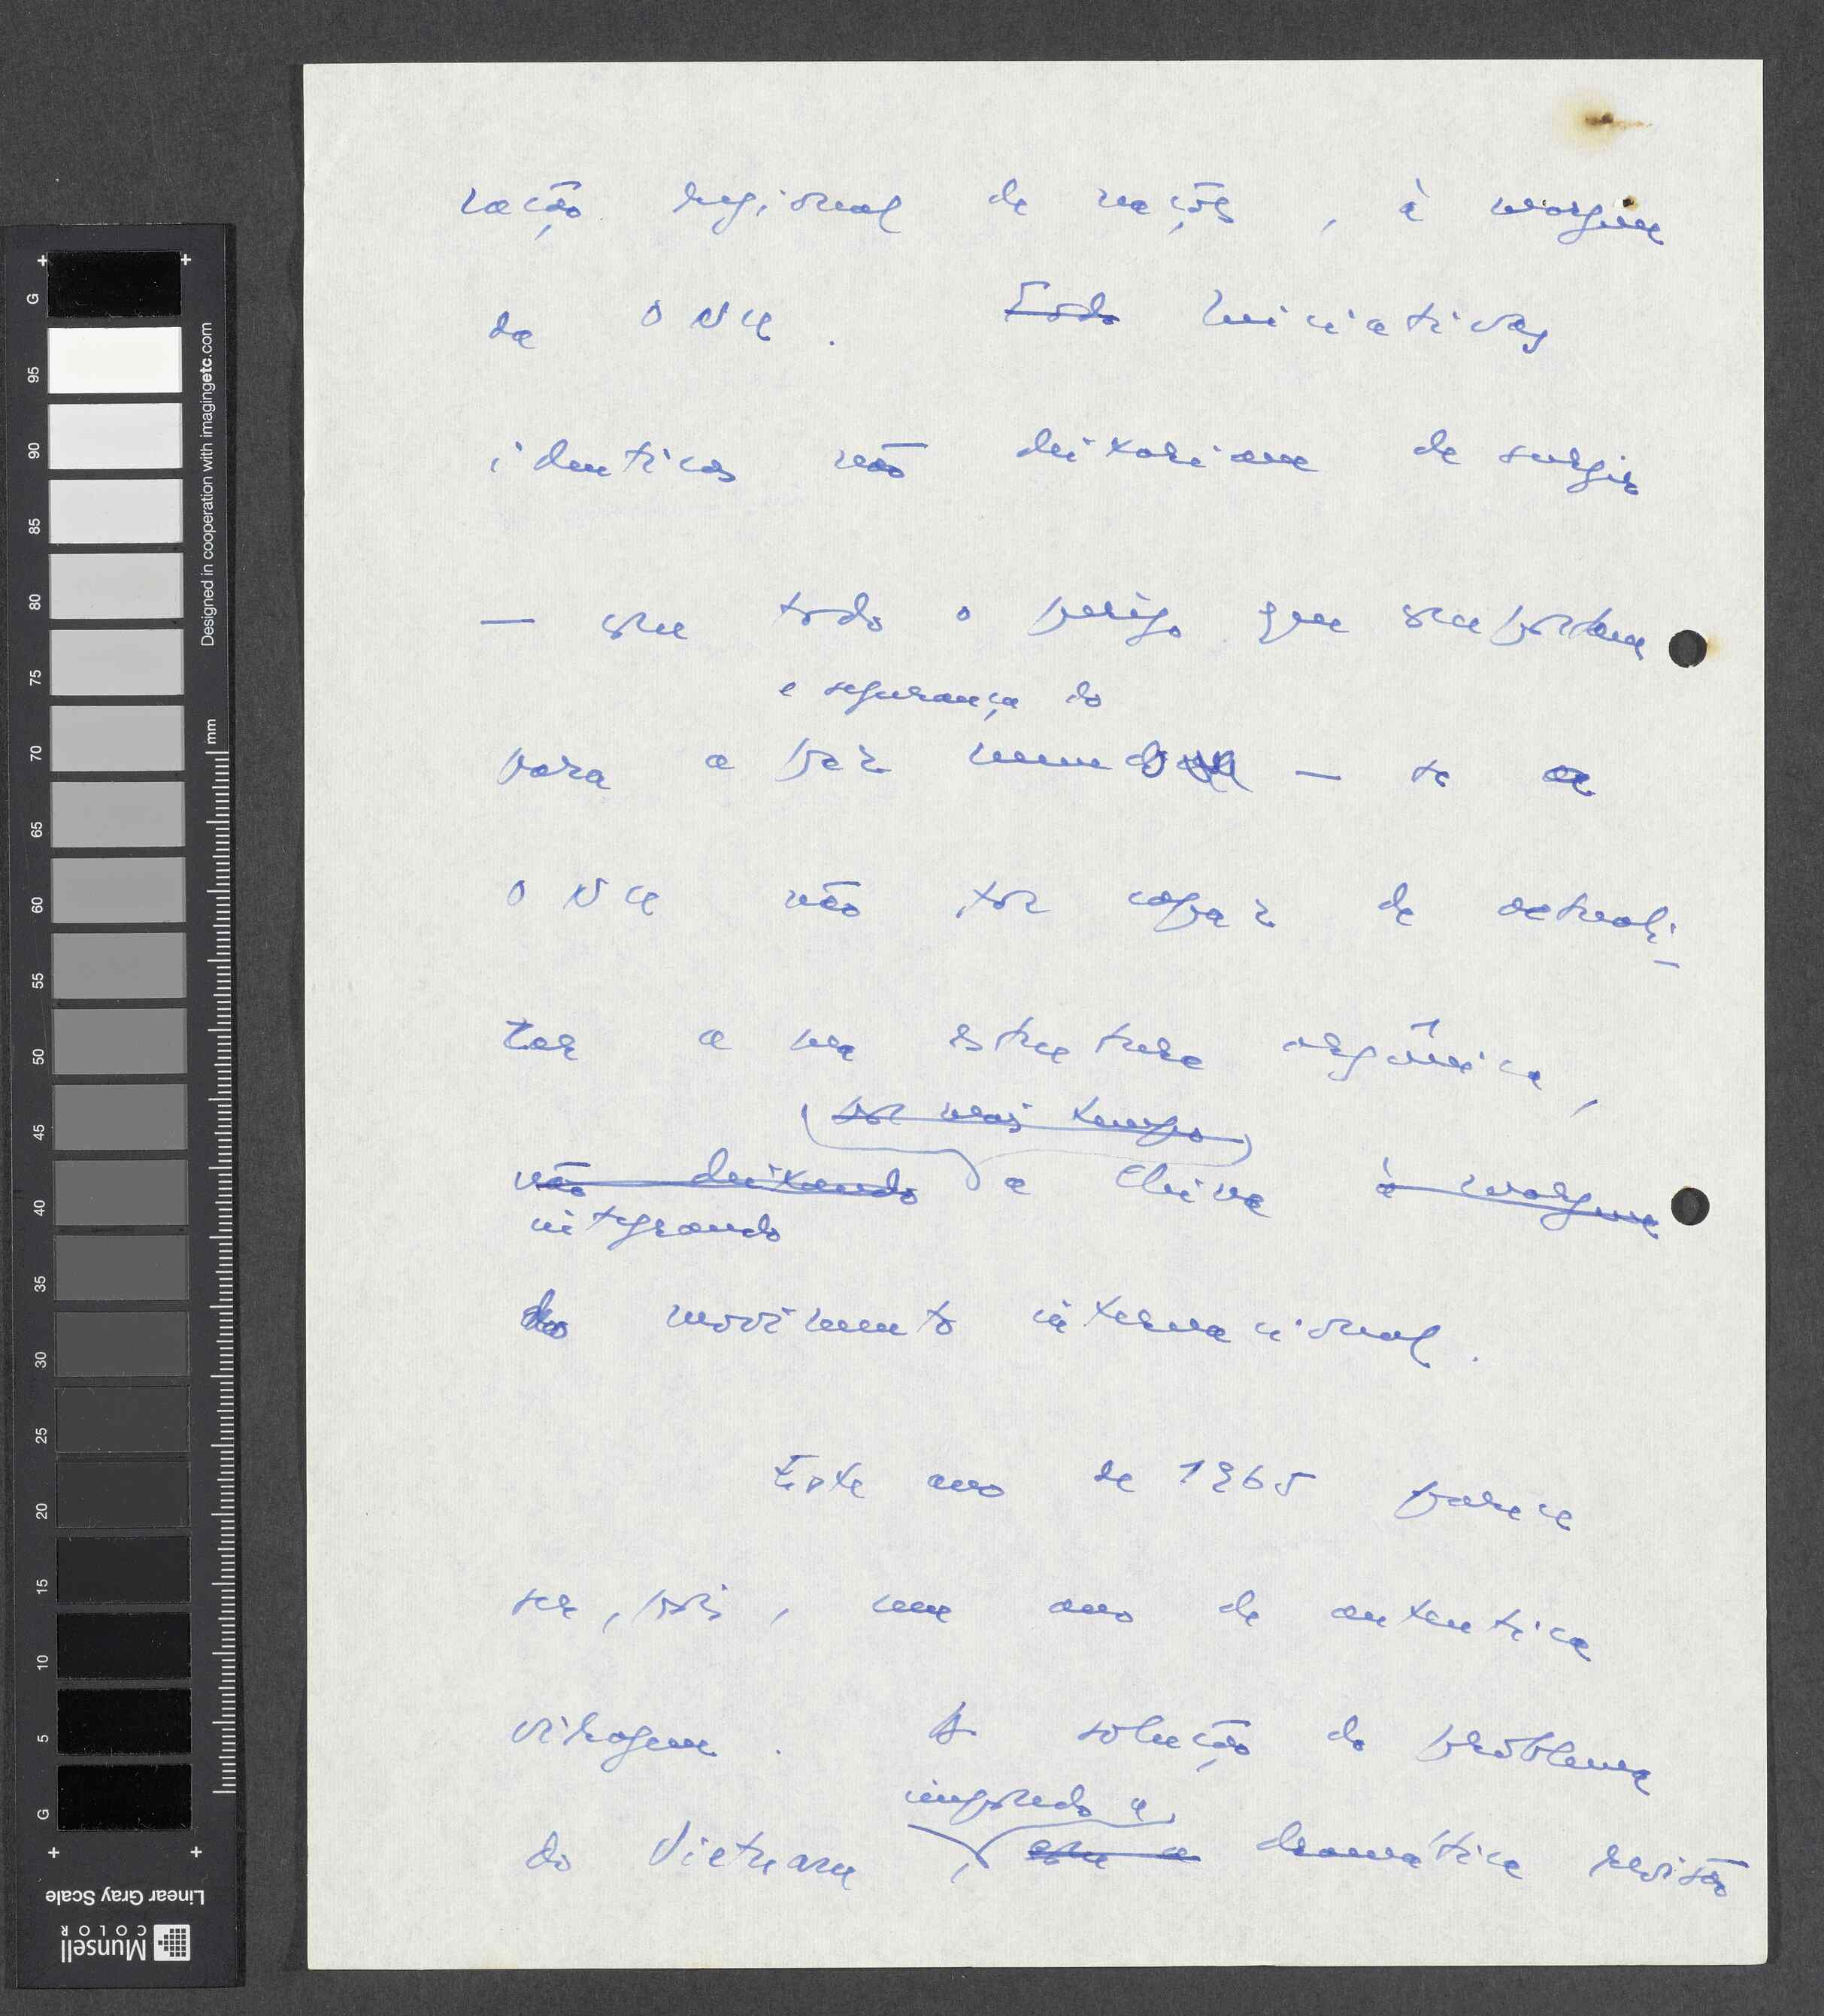 ração regional de nações, à margem
da ONU. Todo Iniciativas
identicas não deixariam de surgir
— com todo o perigo que comportam
e segurança do
para a paz mundo — se a
ONU não for capaz de actuali-
zar a sua estrutura orgânica,
por mais tempo
não deixando a China à margem
integrando
do movimento internacional.
Este ano de 1965 parece
ser, pois, um ano de autentica
viragem. A solução do problema
impondo a
do Vietnam, com a dramática revisão
G
95
90
85
80
75
70
65
60
55
50
45
40
35
30
25
20
15
10
5
G
mm
Designed in cooperation with imagingetc.com
Linear Gray Scale
Munsell
COLOR